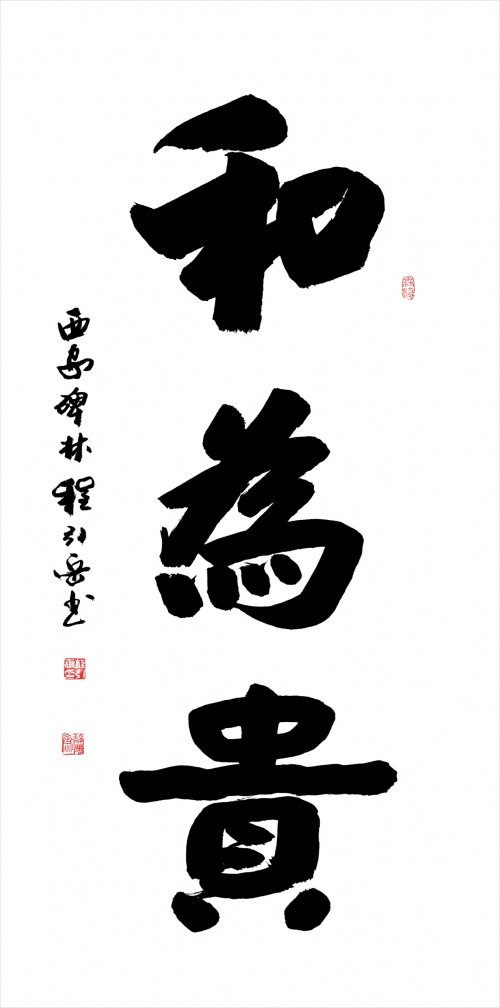 和為貴
西島碑林程引岳書